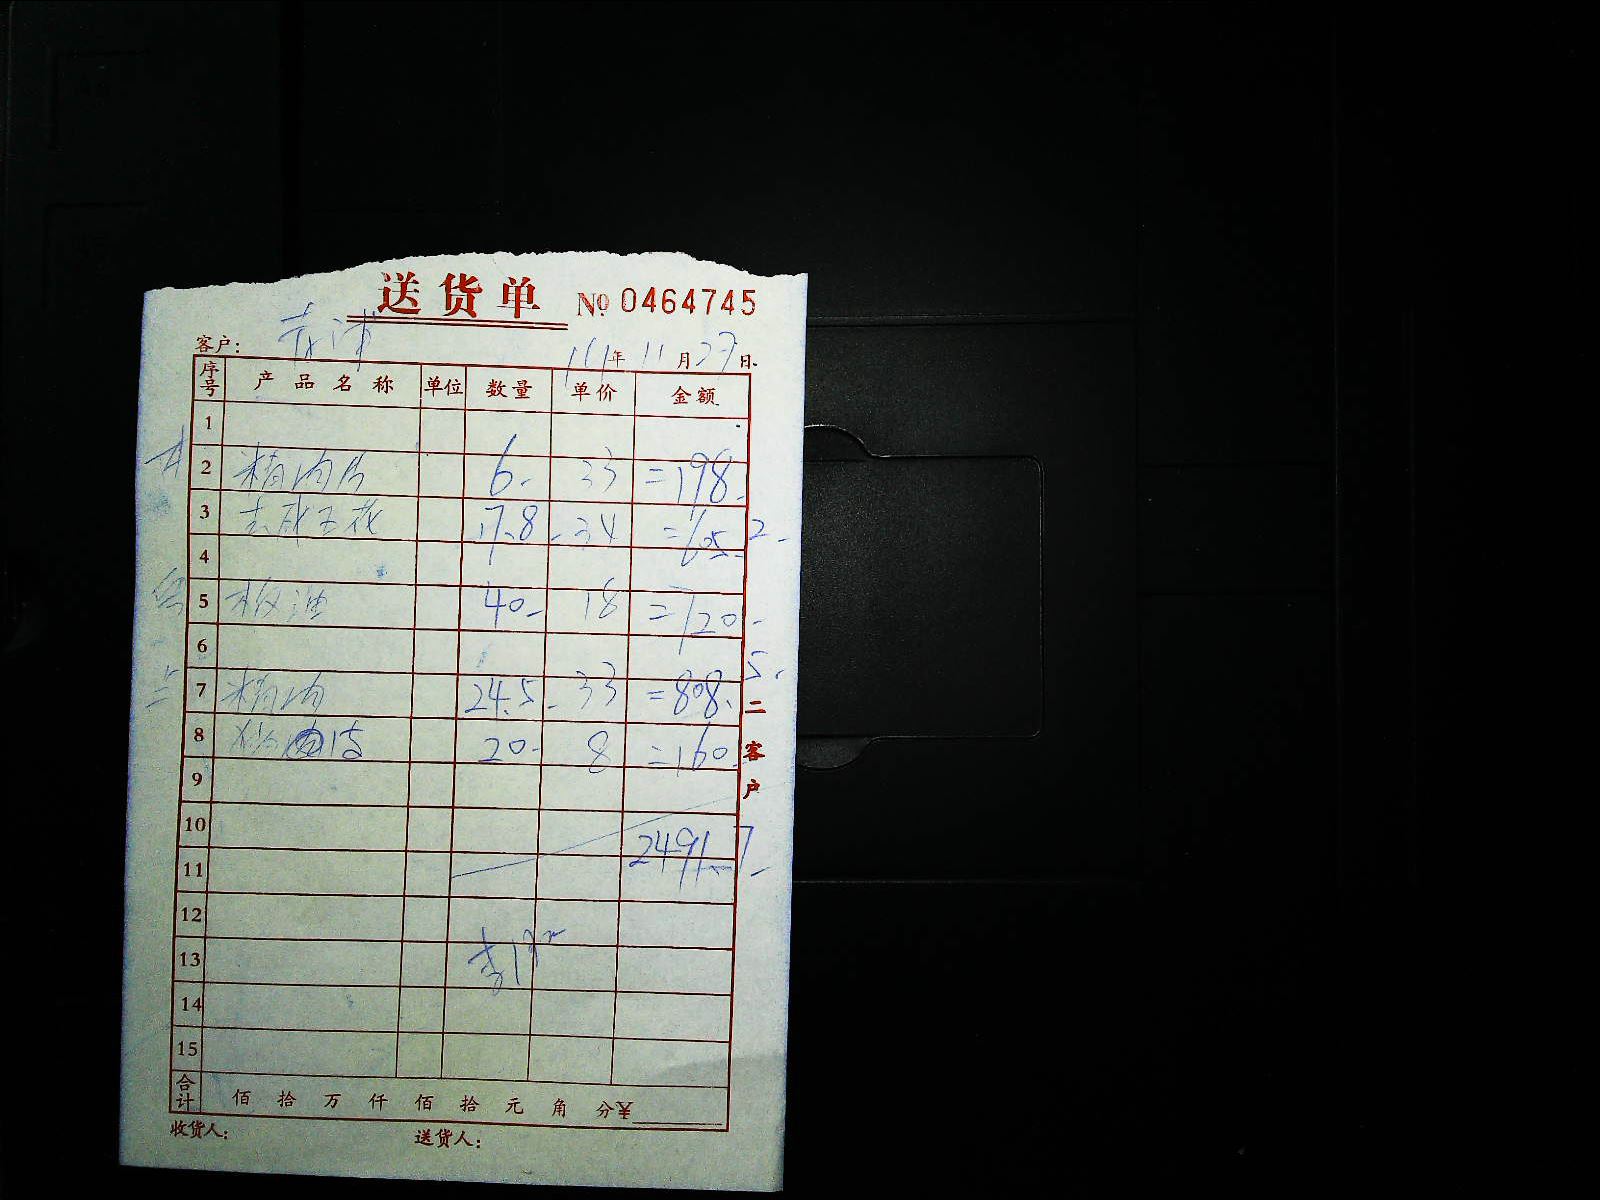 送货单 № 0464745
客户:
年 11 月 27 日
序号 产品名称 单位 数量 单价 金额
1
2 精肉片 6. 33 =198.
3 去皮五花 17.8 - 34 =605.2-
4
5 板油 40- 18 =720-
6
7 精肉 24.5 - 33 =808.5.
8 20- 8 =160.
9
10
2491.7-
11
12
13
14
15
合计 佰 拾 万 仟 佰 拾 元 角 分¥
收货人: 送货人:
二客户